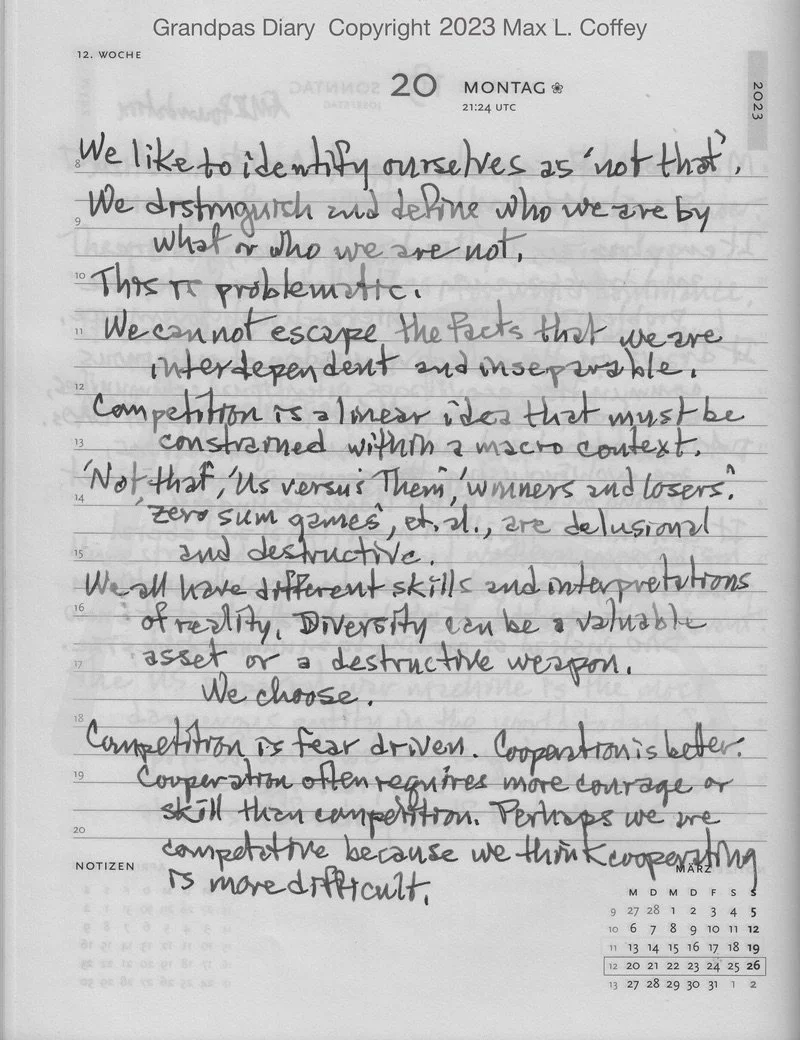 Grandpas Diary Copyright 2023 Max L. Coffey
12. WOCHE
20 MONTAG
21:24 UTC
2023
8 We like to identify ourselves as 'not that'.
We distinguish and define who we are by
9 what or who we are not.
10 This is problematic.
11 We cannot escape the facts that we are
interdependent and inseparable.
12 Competition is a linear idea that must be
13 constrained within a macro context.
'Not that', 'Us versus Them', 'winners and losers'.
14 'Zero sum games', et.al., are delusional
15 and destructive.
We all have different skills and interpretations
16 of reality. Diversity can be a valuable
17 asset or a destructive weapon.
We choose.
18 Competition is fear driven. Cooperation is better.
19 Cooperation often requires more courage or
skill than competition. Perhaps we are
20 competative because we think cooperating
is more difficult.
NOTIZEN
MÄRZ
M D M D F S S
9 27 28 1 2 3 4 5
10 6 7 8 9 10 11 12
11 13 14 15 16 17 18 19
12 20 21 22 23 24 25 26
13 27 28 29 30 31 1 2